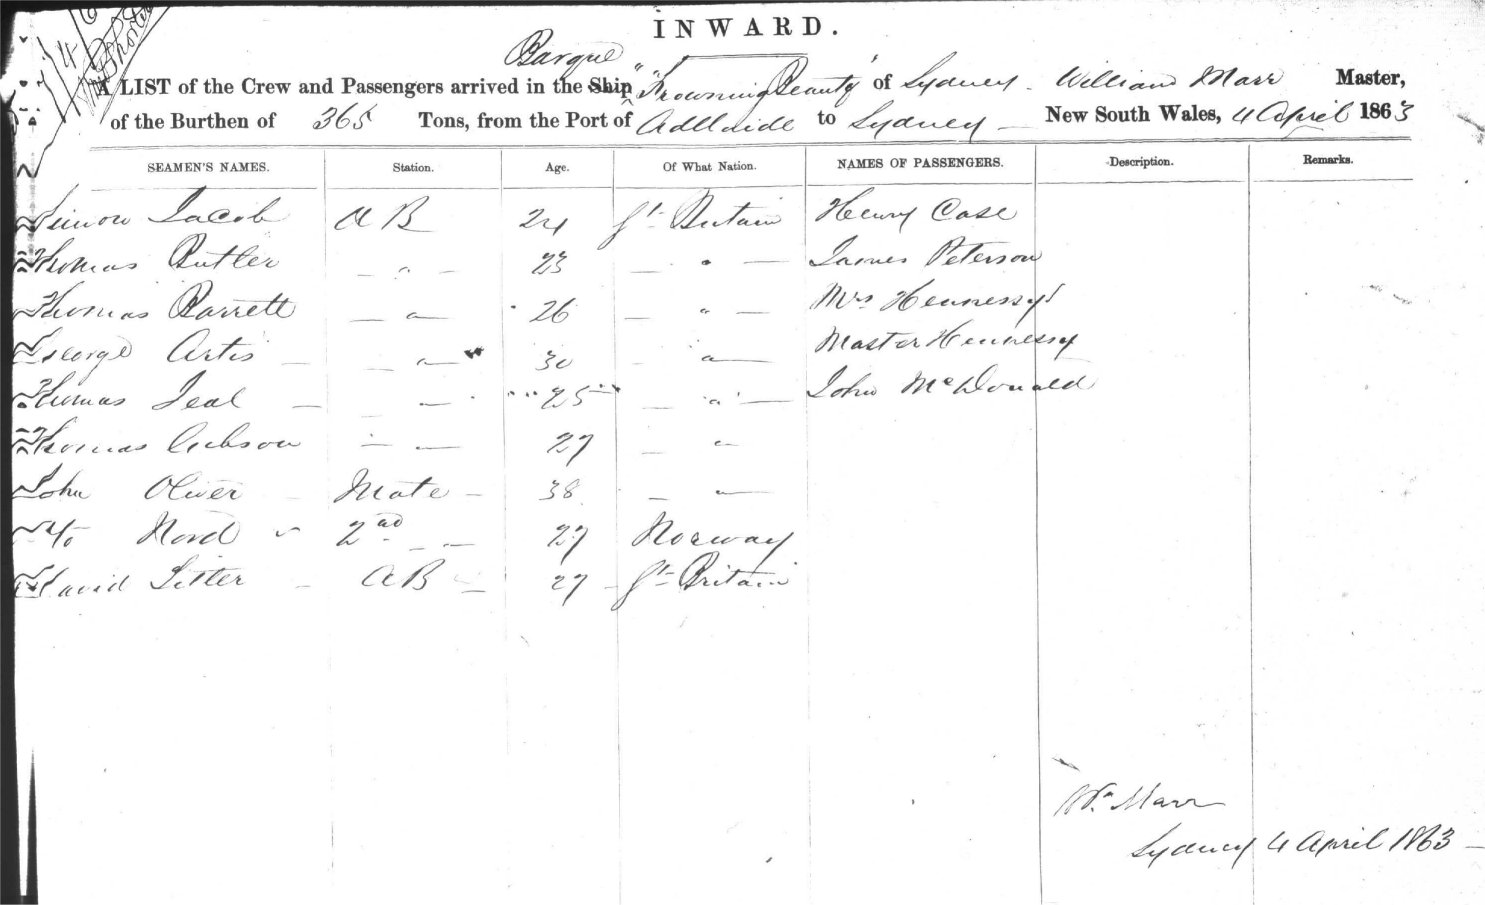 INWARD.
Barque
A LIST of the Crew and Passengers arrived in the Ship "Frowning Beauty" of Sydney - William Marr Master,
of the Burthen of 365 Tons, from the Port of Adelaide to Sydney New South Wales, 4 April 1863
SEAMEN'S NAMES. Station. Age. Of What Nation. NAMES OF PASSENGERS. Description. Remarks.
Simon Jacob A B 24 Gt. Britain Henry Case
Thomas Butler — " — 23 — " — James Peterson
Thomas Barrett — " — 26 — " — Mrs Hennessy
George Artis — — " — 30 — " — Master Hennessy
Thomas — — " — 25 — " — John McDonald
Thomas Gibson — — 27 — "
John Oliver Mate — 38 — " —
Nord 2nd — 27 Norway
David A B — 27 Gt. Britain
Wm. Marr
Sydney 4 April 1863 —